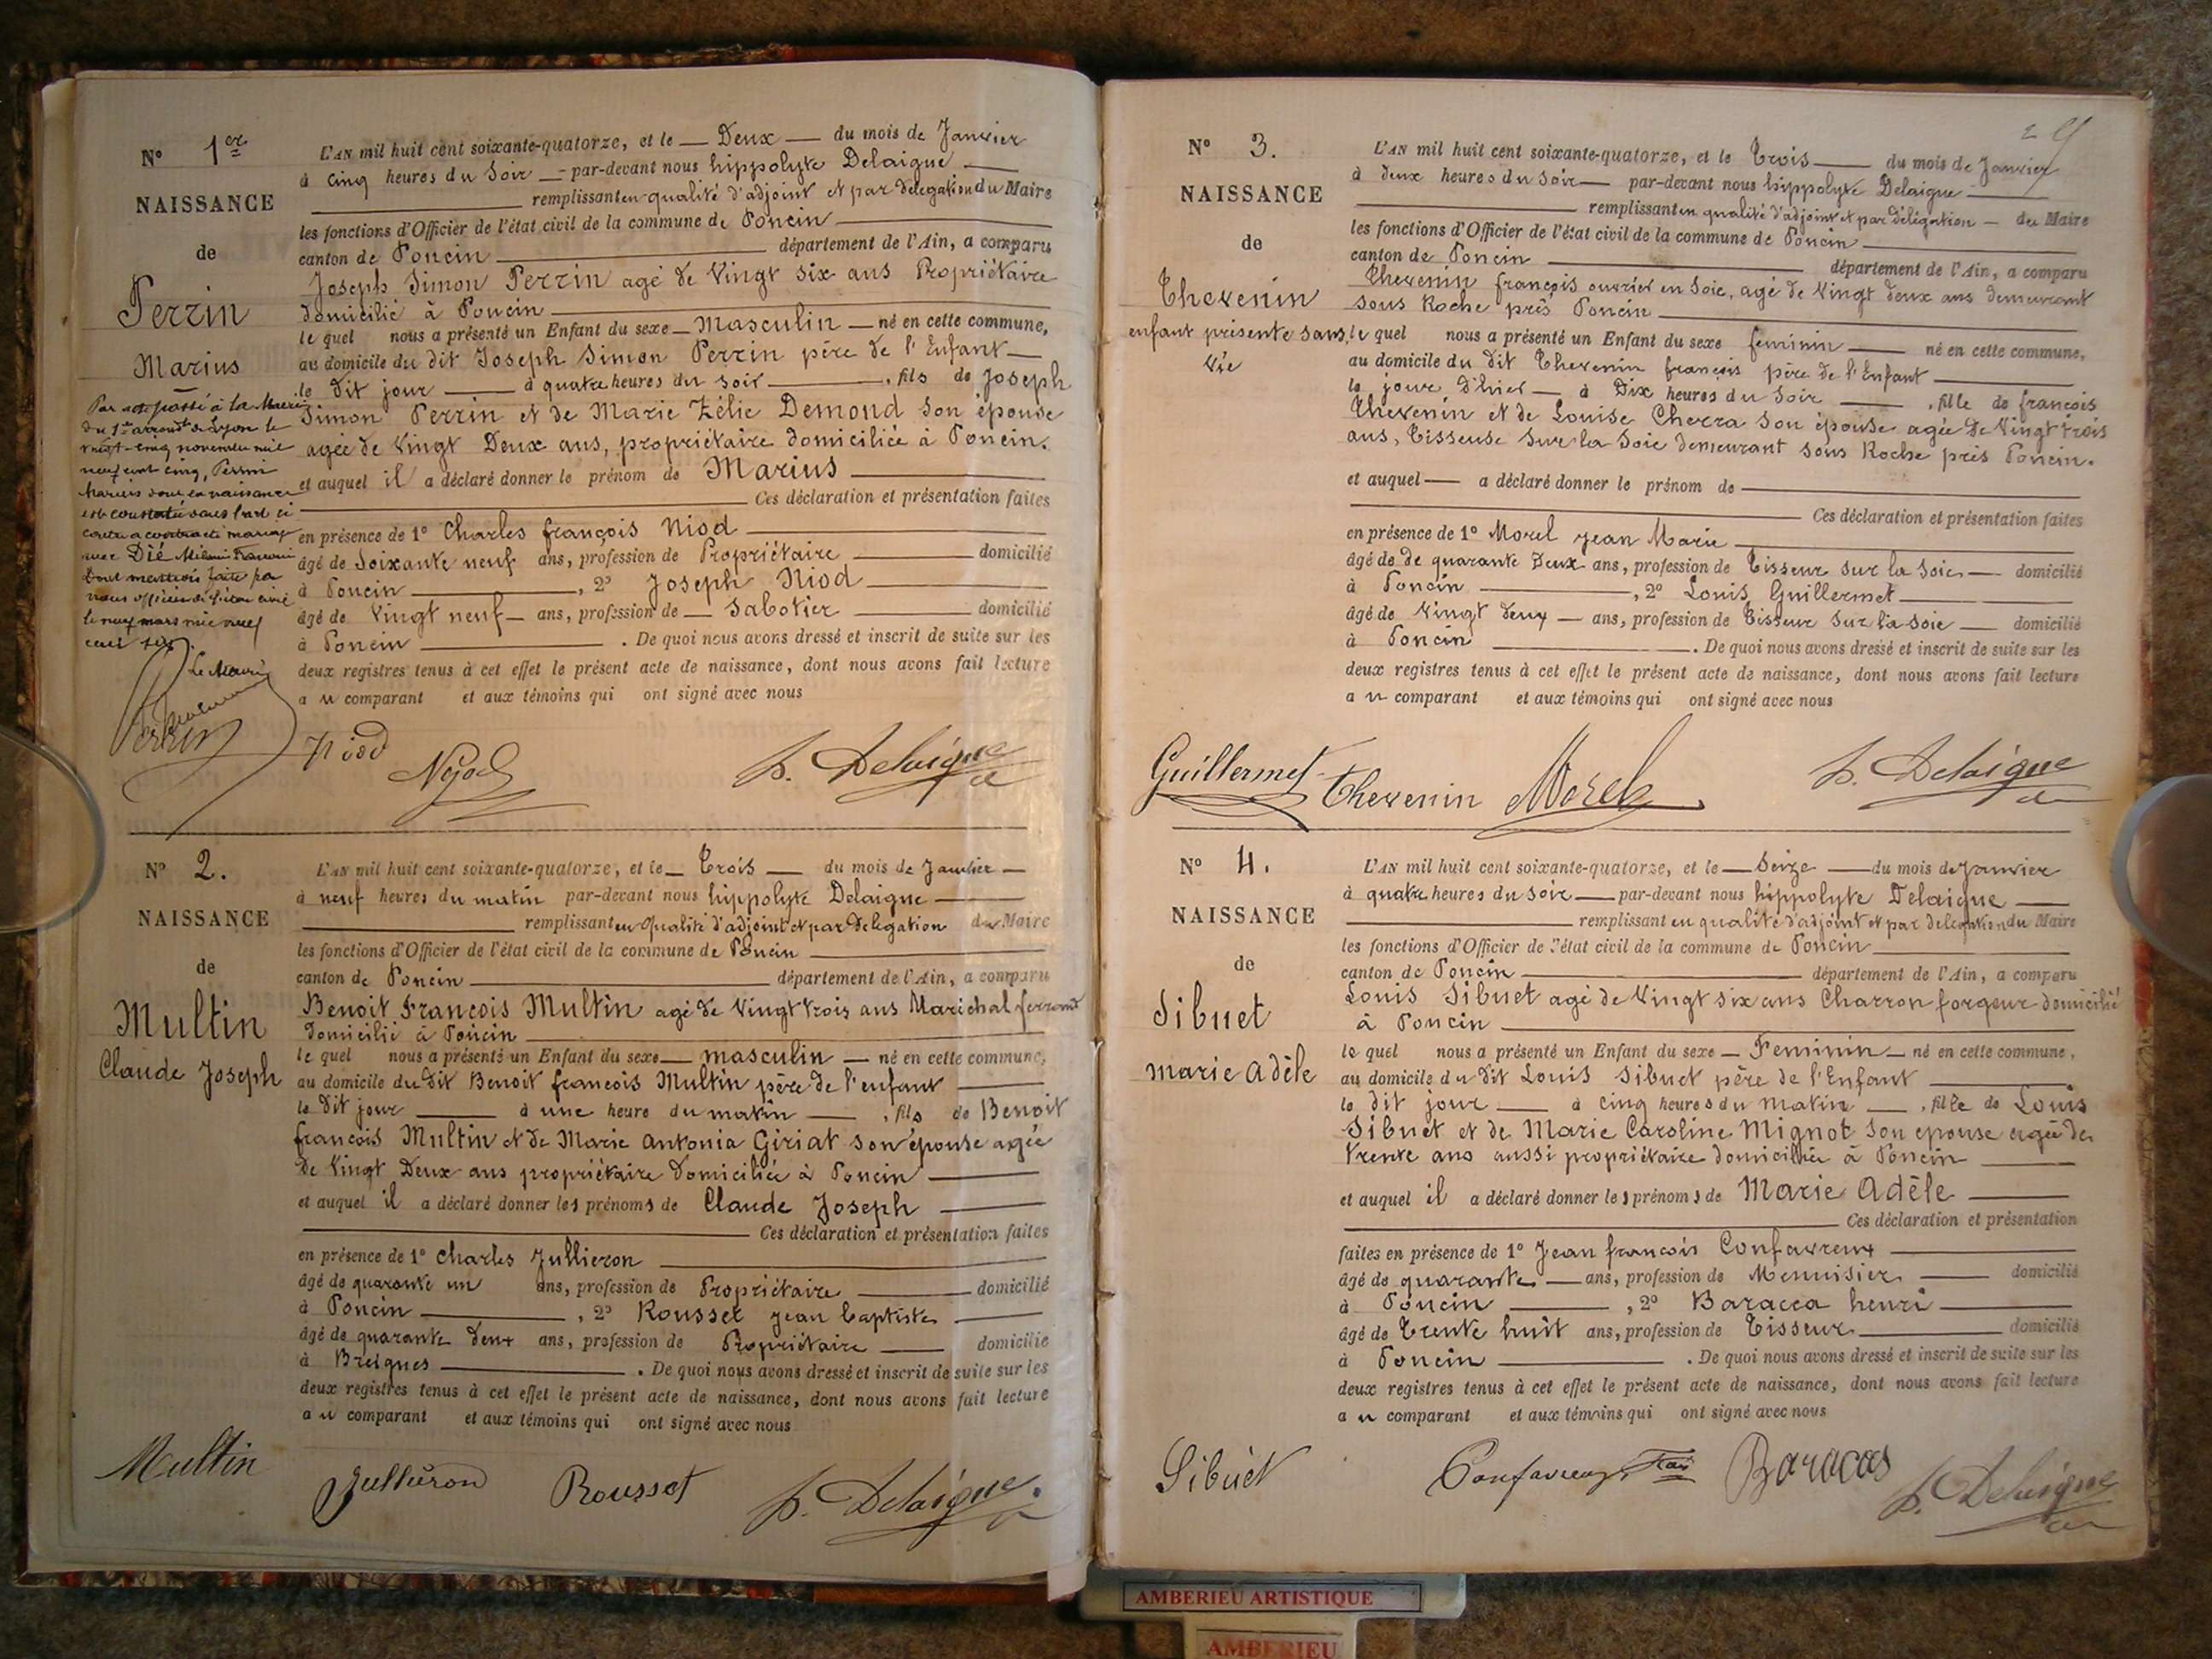 N° 1er
NAISSANCE
de
Perrin
Marius
Par acte passé à la Mairie
du 1er arrondt de Lyon le
vingt-cinq novembre mil
neuf cent cinq, Perrin
Marius dont la naissance
est constatée dans l'acte ci
contre a contracté mariage
avec Dié
Dont mention faite par
nous officier de l'état civil
le neuf mars mil neuf
cent six.
Le Maire
L'AN mil huit cent soixante-quatorze, et le Deux du mois de Janvier
à cinq heures du Soir par-devant nous hippolyte Delaigue
remplissant en qualité d'adjoint et par délégation du Maire
les fonctions d'Officier de l'état civil de la commune de Poncin
canton de Poncin département de l'Ain, a comparu
Joseph Simon Perrin agé de Vingt six ans Propriétaire
domicilié à Poncin
le quel nous a présenté un Enfant du sexe Masculin né en cette commune,
au domicile du dit Joseph Simon Perrin père de l'Enfant
le dit jour à quatre heures du soir, fils de Joseph
Simon Perrin et de Marie Zélie Demond son épouse
agée de Vingt Deux ans, propriétaire domiciliée à Poncin.
et auquel il a déclaré donner le prénom de Marius
Ces déclaration et présentation faites
en présence de 1° Charles françois Niod
âgé de Soixante neuf ans, profession de Propriétaire domicilié
à Poncin, 2° Joseph Niod
âgé de Vingt neuf ans, profession de Sabotier domicilié
à Poncin. De quoi nous avons dressé et inscrit de suite sur les
deux registres tenus à cet effet le présent acte de naissance, dont nous avons fait lecture
au comparant et aux témoins qui ont signé avec nous
Perrin Niod Nyod h. Delaigue
N° 2.
NAISSANCE
de
Multin
Claude Joseph
L'AN mil huit cent soixante-quatorze, et le Trois du mois de Janvier
à neuf heures du matin par-devant nous hippolyte Delaigue
remplissant en Qualité d'adjoint et par Délégation du Maire
les fonctions d'Officier de l'état civil de la commune de Poncin
canton de Poncin département de l'Ain, a comparu
Benoit François Multin agé de Vingt trois ans Maréchal ferrant
domicilié à Poncin
le quel nous a présenté un Enfant du sexe masculin né en cette commune,
au domicile du dit Benoit francois Multin père de l'enfant
le dit jour à une heure du matin, fils de Benoit
francois Multin et de Marie Antonia Giriat son épouse agée
de Vingt Deux ans propriétaire domiciliée à Poncin
et auquel il a déclaré donner les prénoms de Claude Joseph
Ces déclaration et présentation faites
en présence de 1° Charles Jullieron
âgé de quarante un ans, profession de Propriétaire domicilié
à Poncin, 2° Rousset jean baptiste
âgé de quarante deux ans, profession de Propriétaire domicilié
à Breignes. De quoi nous avons dressé et inscrit de suite sur les
deux registres tenus à cet effet le présent acte de naissance, dont nous avons fait lecture
au comparant et aux témoins qui ont signé avec nous
Multin Julliéron Rousset h. Delaigue
N° 3.
NAISSANCE
de
Thevenin
enfant présenté sans
vie
L'AN mil huit cent soixante-quatorze, et le Trois du mois de Janvier
à deux heures du soir par-devant nous hippolyte Delaigue
remplissant en qualité d'adjoint et par délégation du Maire
les fonctions d'Officier de l'état civil de la commune de Poncin
canton de Poncin département de l'Ain, a comparu
Thevenin françois ouvrier en Soie, agé de Vingt deux ans demeurant
sous Roche près Poncin
le quel nous a présenté un Enfant du sexe feminin né en cette commune,
au domicile du dit Thevenin françois père de l'Enfant
le jour d'hier à Dix heures du Soir, fille de françois
Thevenin et de Louise Cherra son épouse agée de Vingt trois
ans, Tisseuse sur la Soie demeurant sous Roche près Poncin.
et auquel a déclaré donner le prénom de
Ces déclaration et présentation faites
en présence de 1° Morel jean Marie
âgé de de quarante Deux ans, profession de Tisseur sur la Soie domicilié
à Poncin, 2° Louis Guillermet
âgé de Vingt deux ans, profession de Tisseur sur la soie domicilié
à Poncin. De quoi nous avons dressé et inscrit de suite sur les
deux registres tenus à cet effet le présent acte de naissance, dont nous avons fait lecture
au comparant et aux témoins qui ont signé avec nous
Guillermet Thevenin Morel h. Delaigue
N° 4.
NAISSANCE
de
Sibuet
marie Adèle
L'AN mil huit cent soixante-quatorze, et le Seize du mois de Janvier
à quatre heures du Soir par-devant nous hippolyte Delaigue
remplissant en qualité d'adjoint et par délégation du Maire
les fonctions d'Officier de l'état civil de la commune de Poncin
canton de Poncin département de l'Ain, a comparu
Louis Sibuet agé de Vingt six ans Charron forgeur domicilié
à Poncin
le quel nous a présenté un Enfant du sexe Feminin né en cette commune,
au domicile du dit Louis Sibuet père de l'Enfant
le dit jour à cinq heures du matin, fille de Louis
Sibuet et de Marie Caroline Mignot son epouse agée de
trente ans aussi propriétaire domiciliée à Poncin
et auquel il a déclaré donner les prénoms de Marie Adèle
Ces déclaration et présentation
faites en présence de 1° Jean francois Confavreux
âgé de quarante ans, profession de Menuisier domicilié
à Poncin, 2° Baracca henri
âgé de Trente huit ans, profession de Tisseur domicilié
à Poncin. De quoi nous avons dressé et inscrit de suite sur les
deux registres tenus à cet effet le présent acte de naissance, dont nous avons fait lecture
au comparant et aux témoins qui ont signé avec nous
Sibuet Confavreux Baracas h. Delaigue
AMBERIEU ARTISTIQUE
AMBERIEU